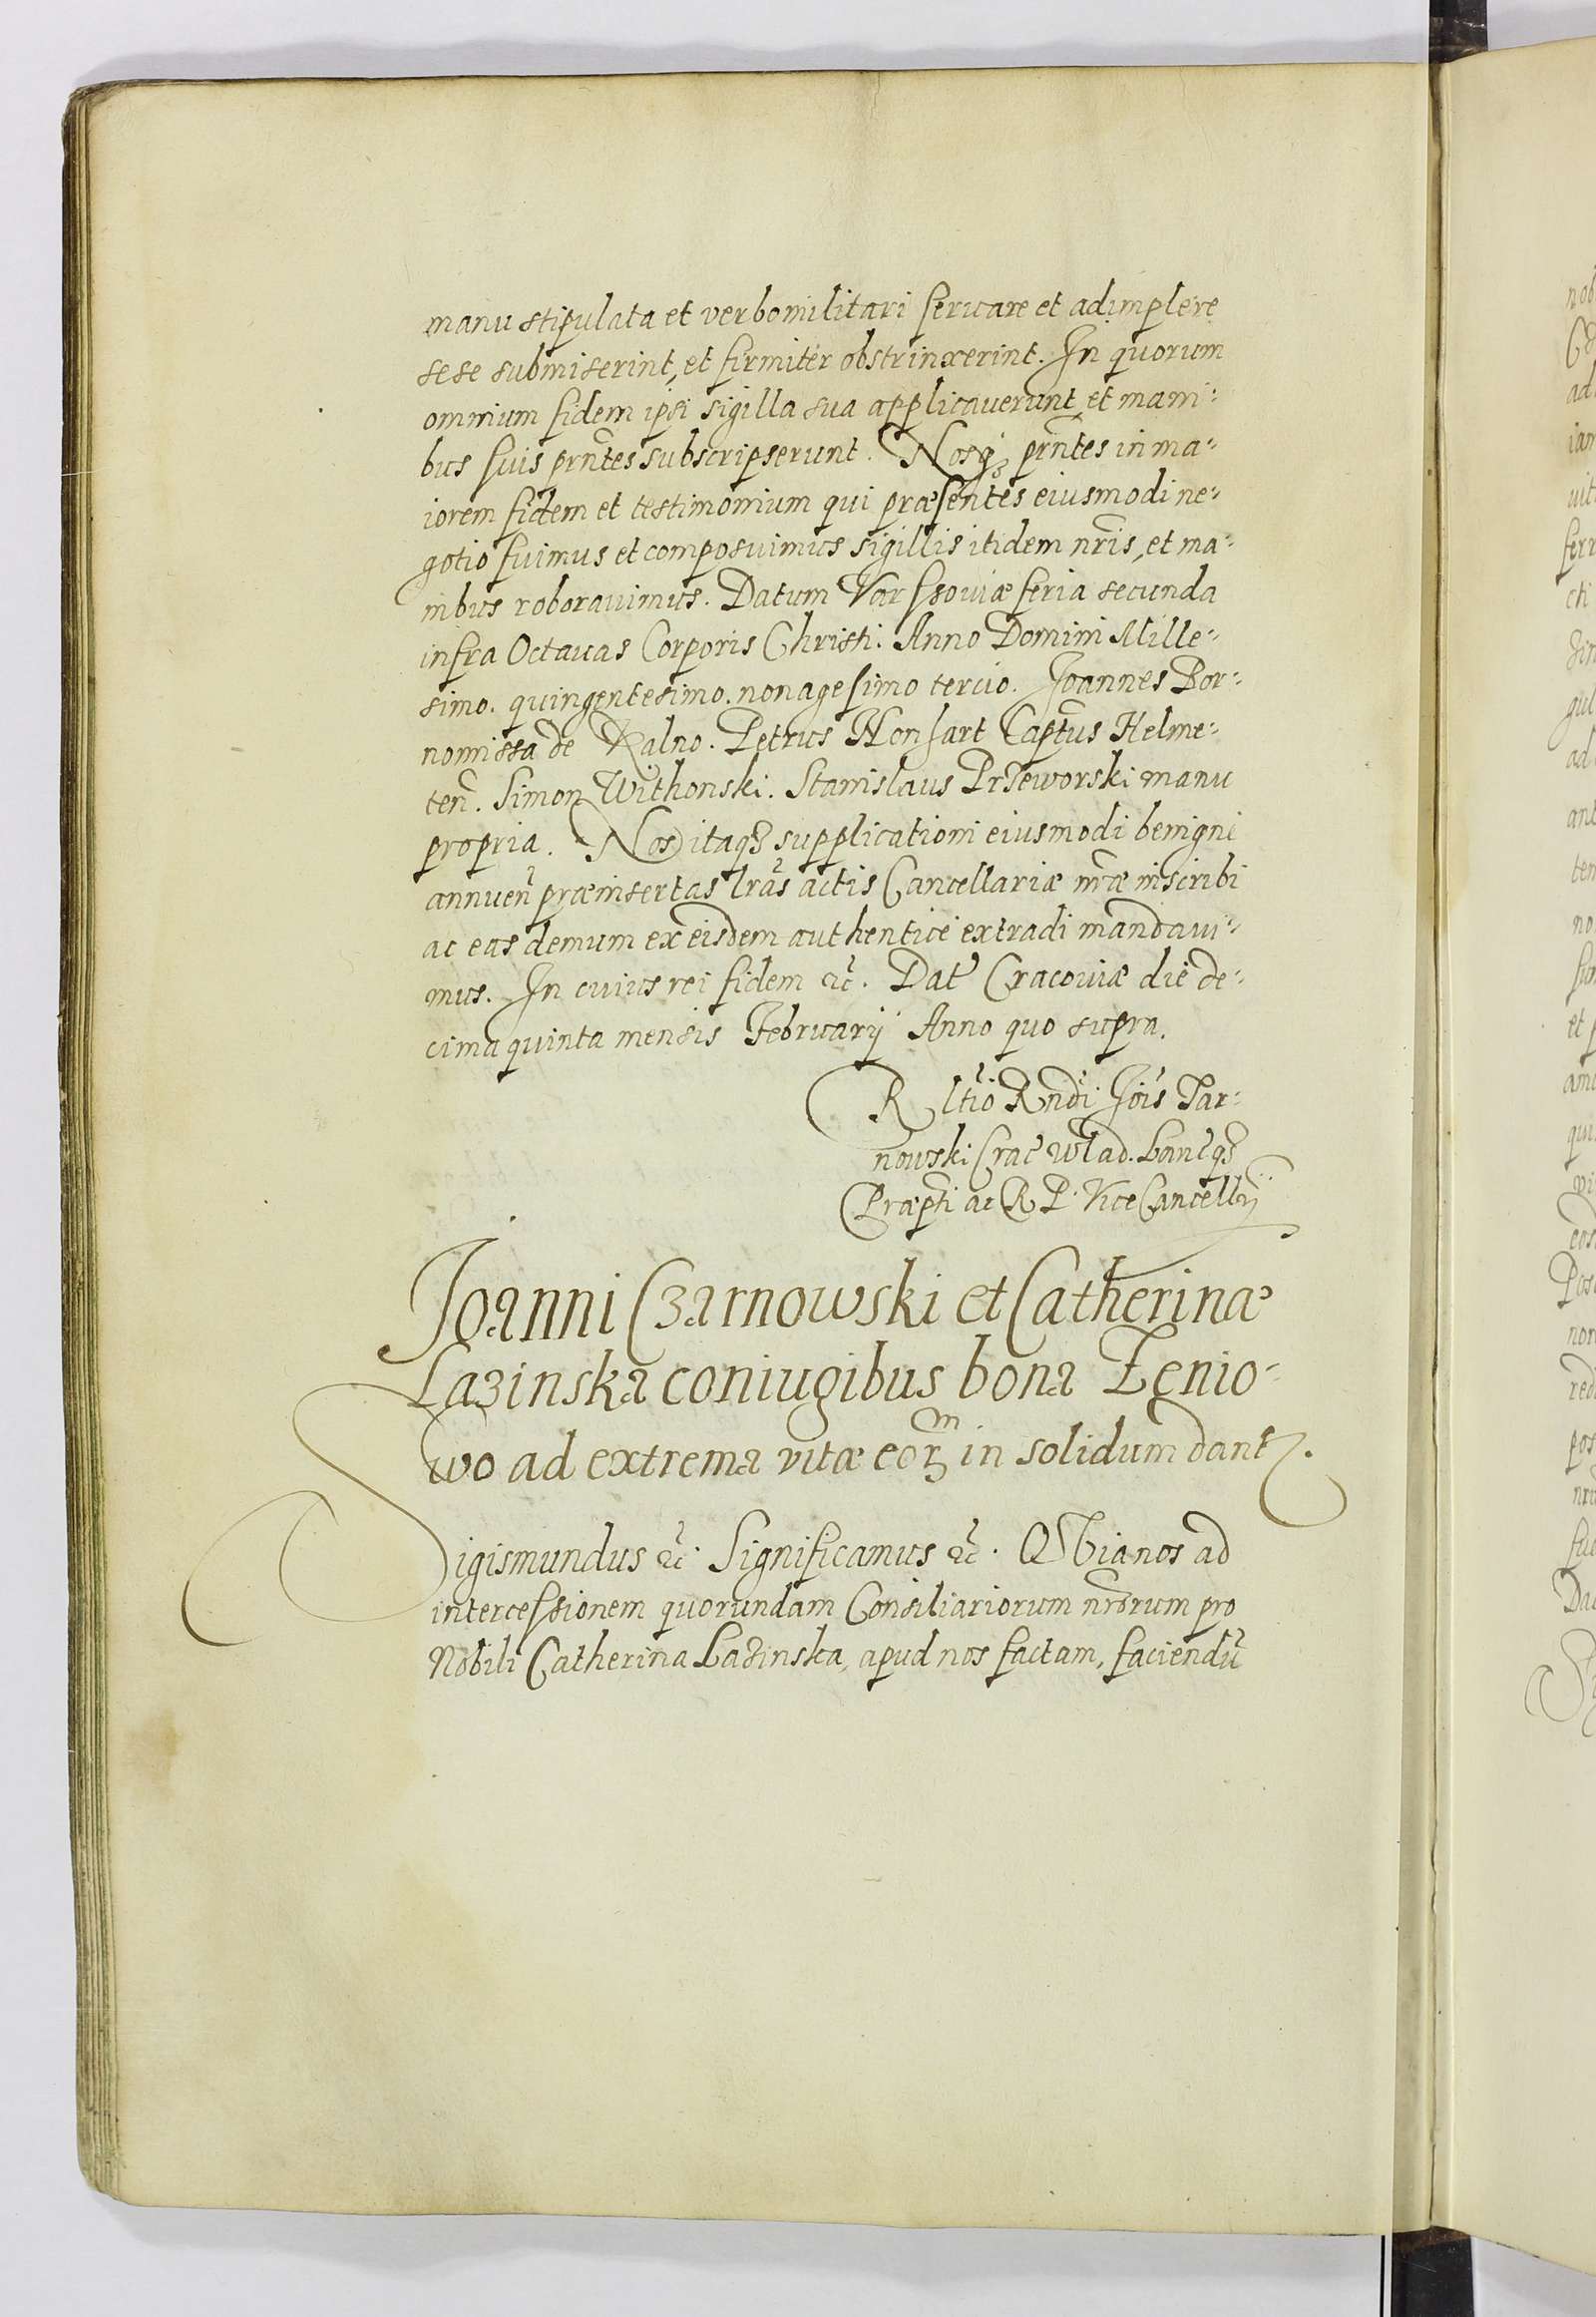 manu stipulata et verbo militari servare et adimplere
sese submiserint, et firmiter obstrinxerint. In quorum
omnium fidem ipsi sigilla sua applicaverunt, et mani-
bus suis prñtes subscripserunt. Nosq₃ prñtes in ma-
iorem fidem et testimonium qui præsentes eiusmodi ne-
gotio fuimus et composuimus sigillis itidem nr̃is, et ma-
nibus roboravimus. Datum Varssoviæ feria secunda
infra Octavas Corporis Christi. Anno Domini Mille-
simo. quingentesimo. nonagesimo tercio. Joannes Bor-
nomissa de Kalno. Petrus Honsart Captus Helme-
ten̄. Simon Withonski. Stanislaus Przeworski manu
propria. Nos itaq₃ supplicationi eiusmodi benigne
annuen̄ præinsertas lr̃as actis Cancellariæ nr̃æ inscribi
ac eas demum ex eisdem authentice extradi mandavi-
mus. In cuius rei fidem ꝛc̃. Dat̃ Cracoviæ die de-
cima quinta mensis Februarij Anno quo supra.
Rltio Rndi Jois Tar-
nowski Crac̃ Wlad. Lanc̃q₃
Præpti ac R P. ViceCancellrij
Joanni Czarnowski et Catherinæ
Lazinska coniugibus bona Zenio-
wo ad extrema vitæ eorm in solidum dant̃.
Sigismundus ꝛc̃. Significamus ꝛc̃. Quia nos ad
intercessionem quorundam Consiliariorum nr̃orum pro
Nobili Catherina Lazinska, apud nos factam, faciendũ